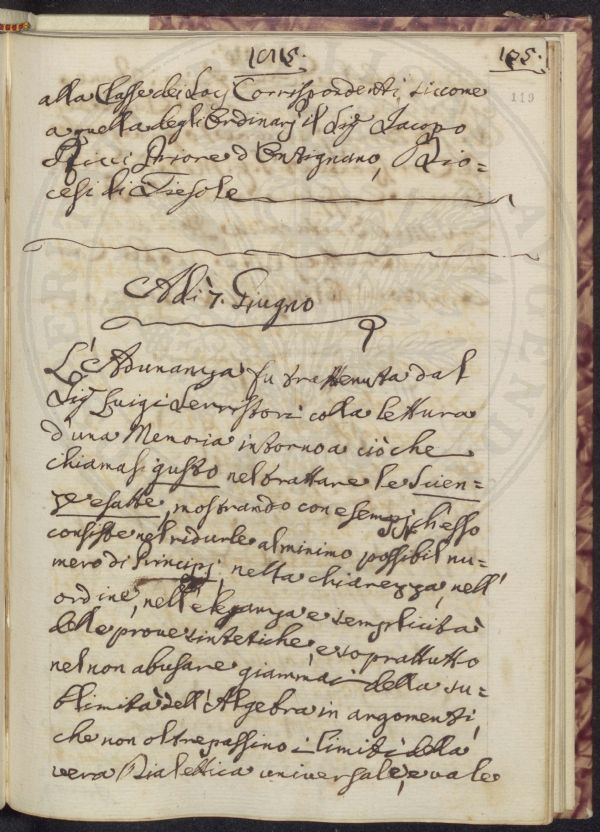 1815. 175.
119
alla Classe dei Socj Corrispondenti, siccome
a quella degli Ordinarj il Sig. Jacopo
Ricci Priore d'Entignano, Dio=
cesi di Fiesole
Adì 7. Giugno
L'Adunanza fu trattenuta dal
Sig. Luigi Serristori colla lettura
d'una Memoria intorno a ciò che
chiamasi gusto nel trattare le Scien=
ze esatte, mostrando con esempj ch'esso
consiste nel ridurle al minimo possibil nu=
mero di Principj, nella chiarezza, nell'
ordine, nell'eleganza e semplicità
delle prove sintetiche, e soprattutto
nel non abusare giammai della su=
blimità dell'Algebra in argomenti,
che non oltrepassino i limiti della
vera Dialettica universale, e vale